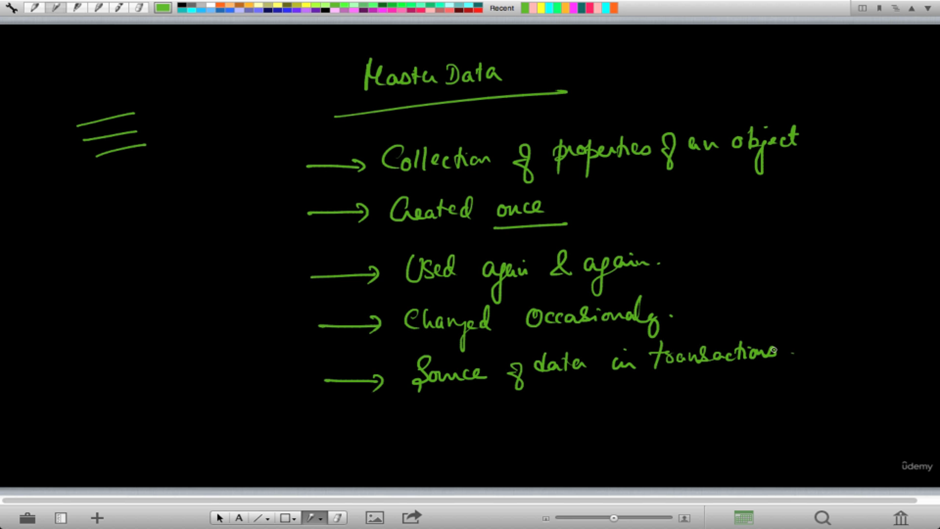 Recent
Master Data
Collection of properties of an object
Created once
Used again & again.
Changed Occasionaly.
Source of data in transactions.
ûdemy
A